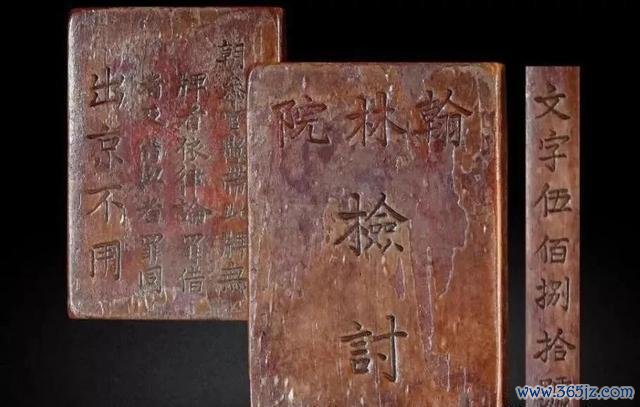 朝參官懸帶此牌無
牌者依律論罪借
者及借與者罪同
出京不用
翰林院
檢討
文字伍佰捌拾
www.365jz.com